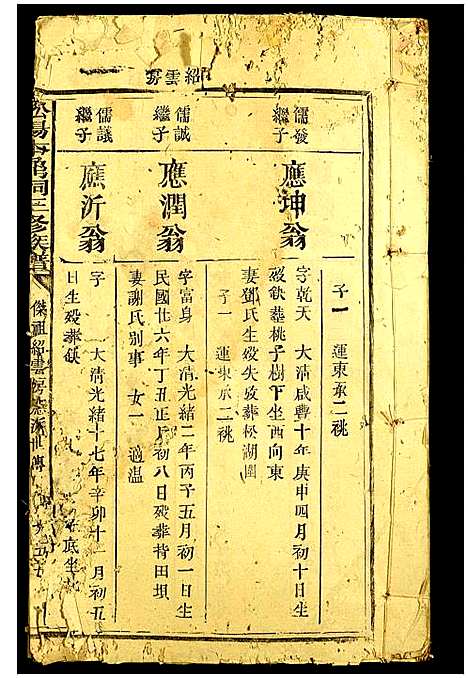 紹雲房
子一 運東承二祧
儒發
繼子
應坤翁
字乾天 大清咸豐十年庚申四月初十日生
歿缺葬桃子樹下坐西向東
妻鄧氏生歿失攷葬松湖圍
子一 運東承二祧
儒誠
繼子
應潤翁
字富身 大清光緒二年丙子五月初一日生
民國廿六年丁丑正月初八日歿葬持田垻
妻謝氏别事 女一 適溫
儒議
繼子
應沂翁
字 大清光緒十七年辛卯十一月初五
日生歿葬缺
三修族譜
傑祖紹雲房
世傳